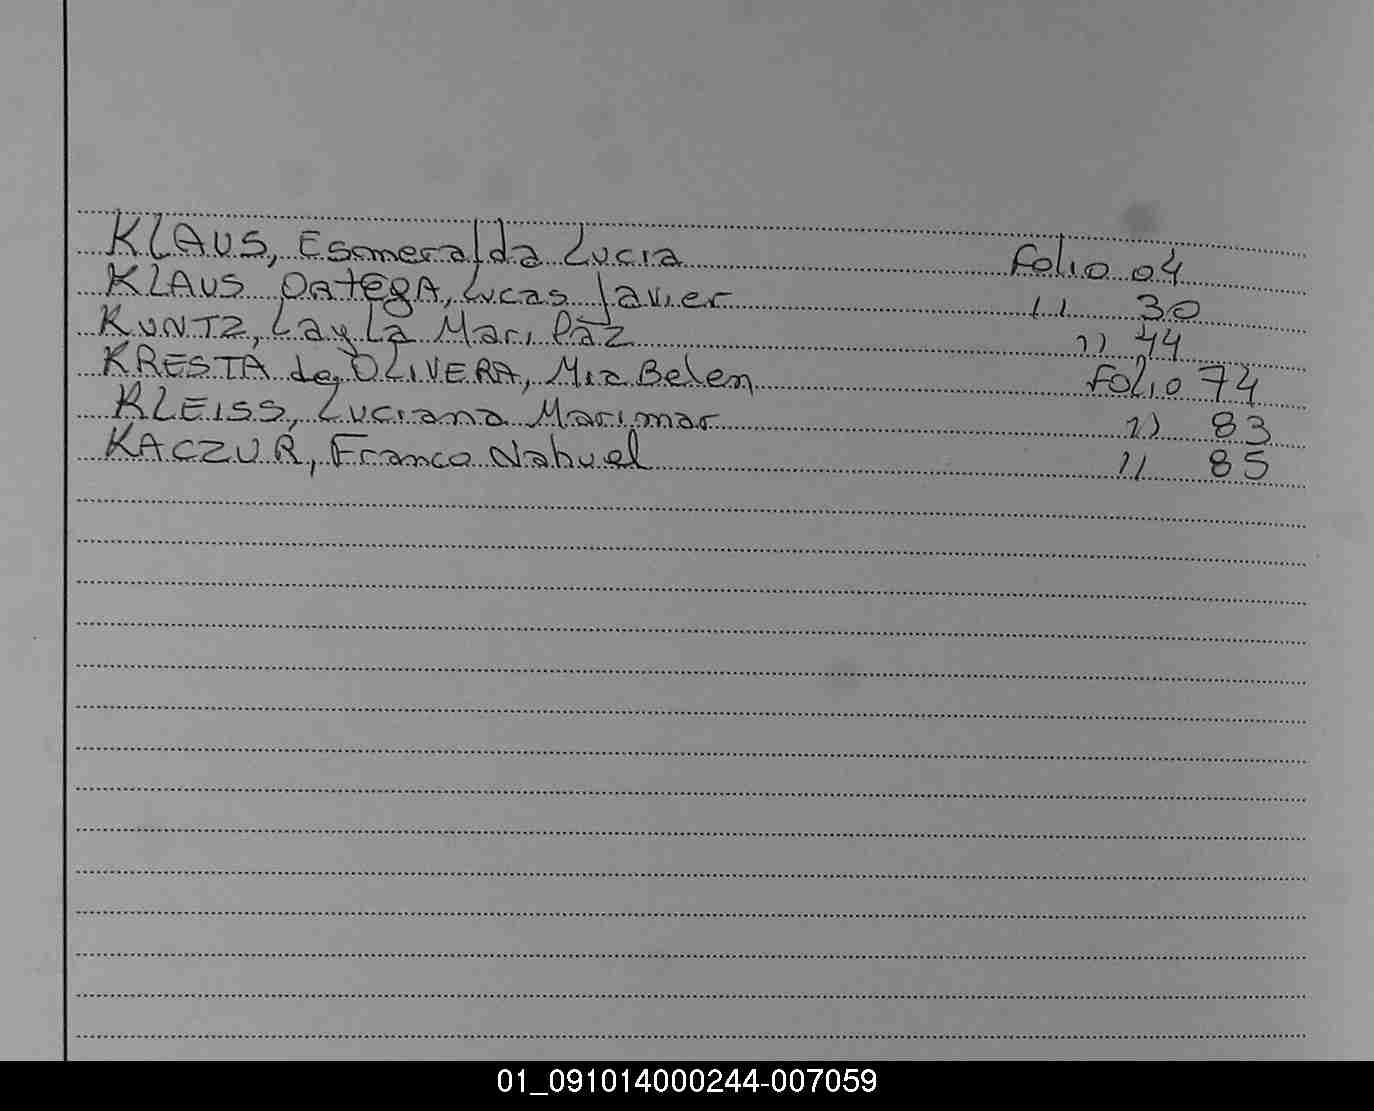 KLAUS, Esmeralda Lucia Folio 04
KLAUS ORTEGA, Lucas Javier 11 30
KUNTZ, Layla Mari Paz 11 44
KRESTA de OLIVERA, Mia Belen Folio 74
KLEISS, Luciana Marimar 11 83
KACZUR, Franco Nahuel 11 85
01_091014000244-007059